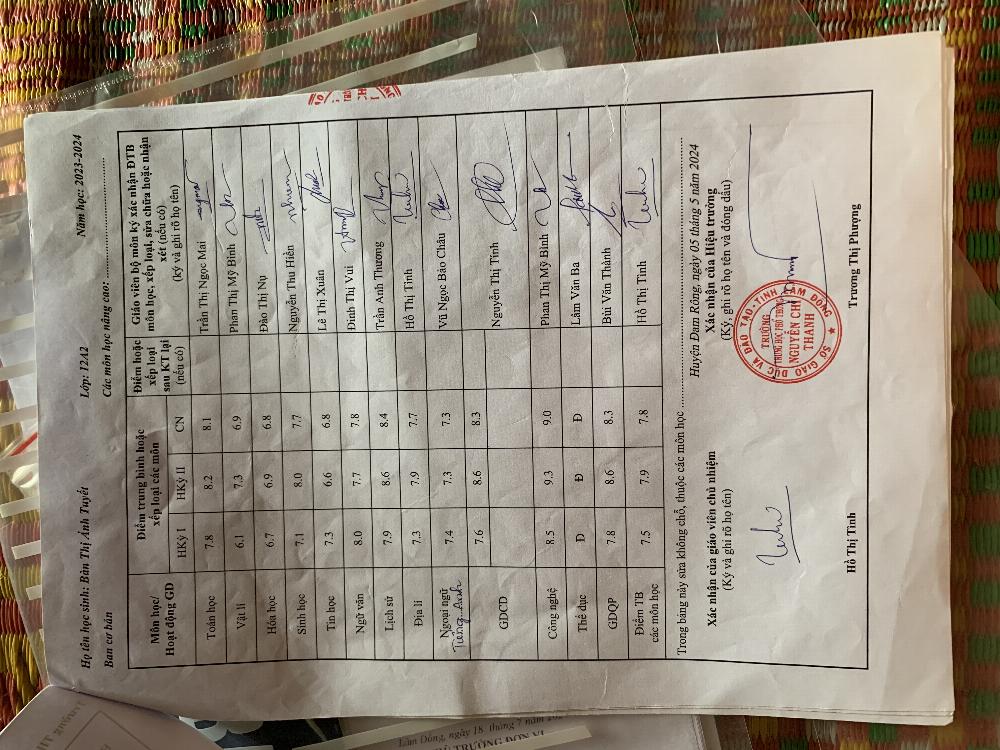 Họ tên học sinh: Bàn Thị Ánh Tuyết Lớp: 12A2 Năm học: 2023-2024
Ban cơ bản Các môn học nâng cao:
Môn học/ Hoạt động GD | Điểm trung bình hoặc xếp loại các môn | Điểm hoặc xếp loại sau KT lại (nếu có) | Giáo viên bộ môn ký xác nhận ĐTB môn học, xếp loại, sửa chữa hoặc nhận xét (nếu có) (ký và ghi rõ họ tên)
HKỳ I | HKỳ II | CN
Toán học 7.8 8.2 8.1 Trần Thị Ngọc Mai
Vật lí 6.1 7.3 6.9 Phan Thị Mỹ Bình
Hóa học 6.7 6.9 6.8 Đào Thị Nụ
Sinh học 7.1 8.0 7.7 Nguyễn Thu Hiền
Tin học 7.3 6.6 6.8 Lê Thị Xuân
Ngữ văn 8.0 7.7 7.8 Đinh Thị Vui
Lịch sử 7.9 8.6 8.4 Trần Anh Thương
Địa lí 7.3 7.9 7.7 Hồ Thị Tình
Ngoại ngữ Tiếng Anh 7.4 7.3 7.3 Vũ Ngọc Bảo Châu
GDCD 7.6 8.6 8.3 Nguyễn Thị Tinh
Công nghệ 8.5 9.3 9.0 Phan Thị Mỹ Bình
Thể dục Đ Đ Đ Lâm Văn Ba
GDQP 7.8 8.6 8.3 Bùi Văn Thành
Điểm TB các môn học 7.5 7.9 7.8 Hồ Thị Tình
Trong bảng này sửa không chỗ, thuộc các môn học
Huyện Đam Rông, ngày 05 tháng 5 năm 2024
Xác nhận của giáo viên chủ nhiệm
(Ký và ghi rõ họ tên)
Hồ Thị Tình
Xác nhận của Hiệu trưởng
(Ký, ghi rõ họ tên và đóng dấu)
SỞ GIÁO DỤC VÀ ĐÀO TẠO TỈNH LÂM ĐỒNG
TRƯỜNG
TRUNG HỌC PHỔ THÔNG
NGUYỄN CHÍ
THANH
Trương Thị Phượng
Lâm Đồng, ngày 18 tháng 7 năm
TRƯỞNG ĐƠN VỊ